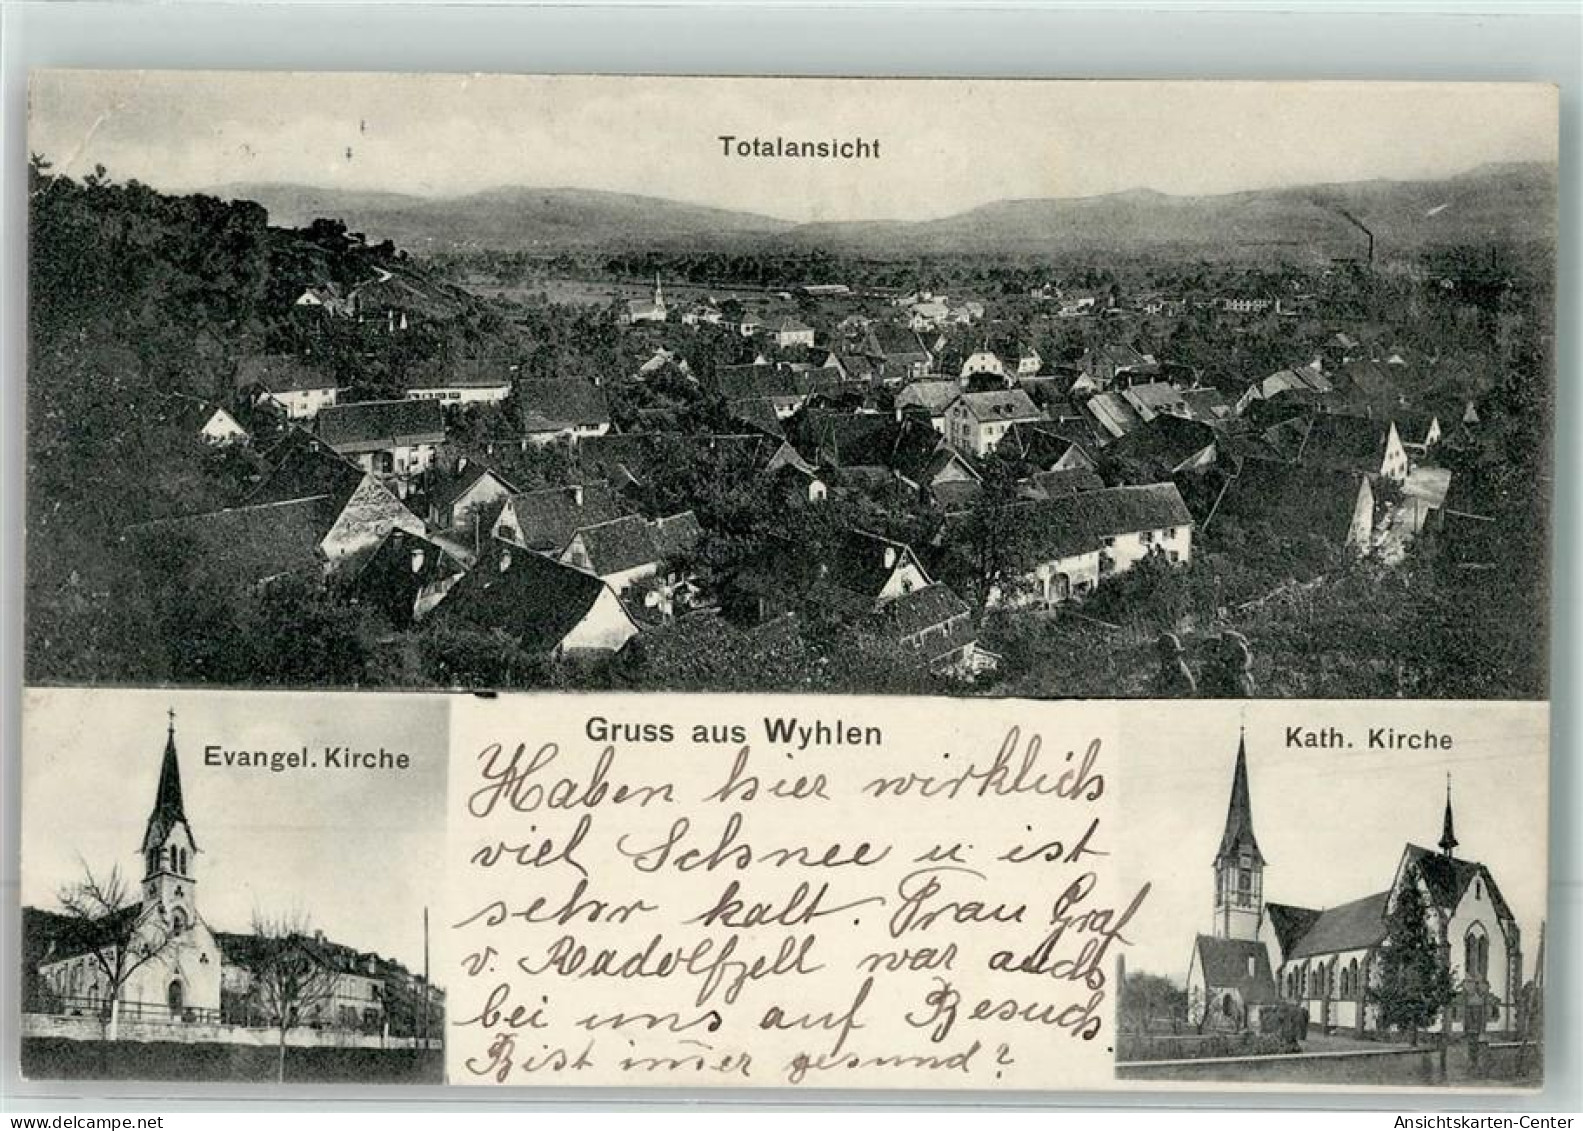 Totalansicht
Gruss aus Wyhlen
Evangel. Kirche
Kath. Kirche
Haben hier wirklich
viel Schnee u. ist
sehr kalt. Frau Graf
v. Radolfzell war auch
bei uns auf Besuch.
Bist immer gesund?
www.delcampe.net
Ansichtskarten-Center